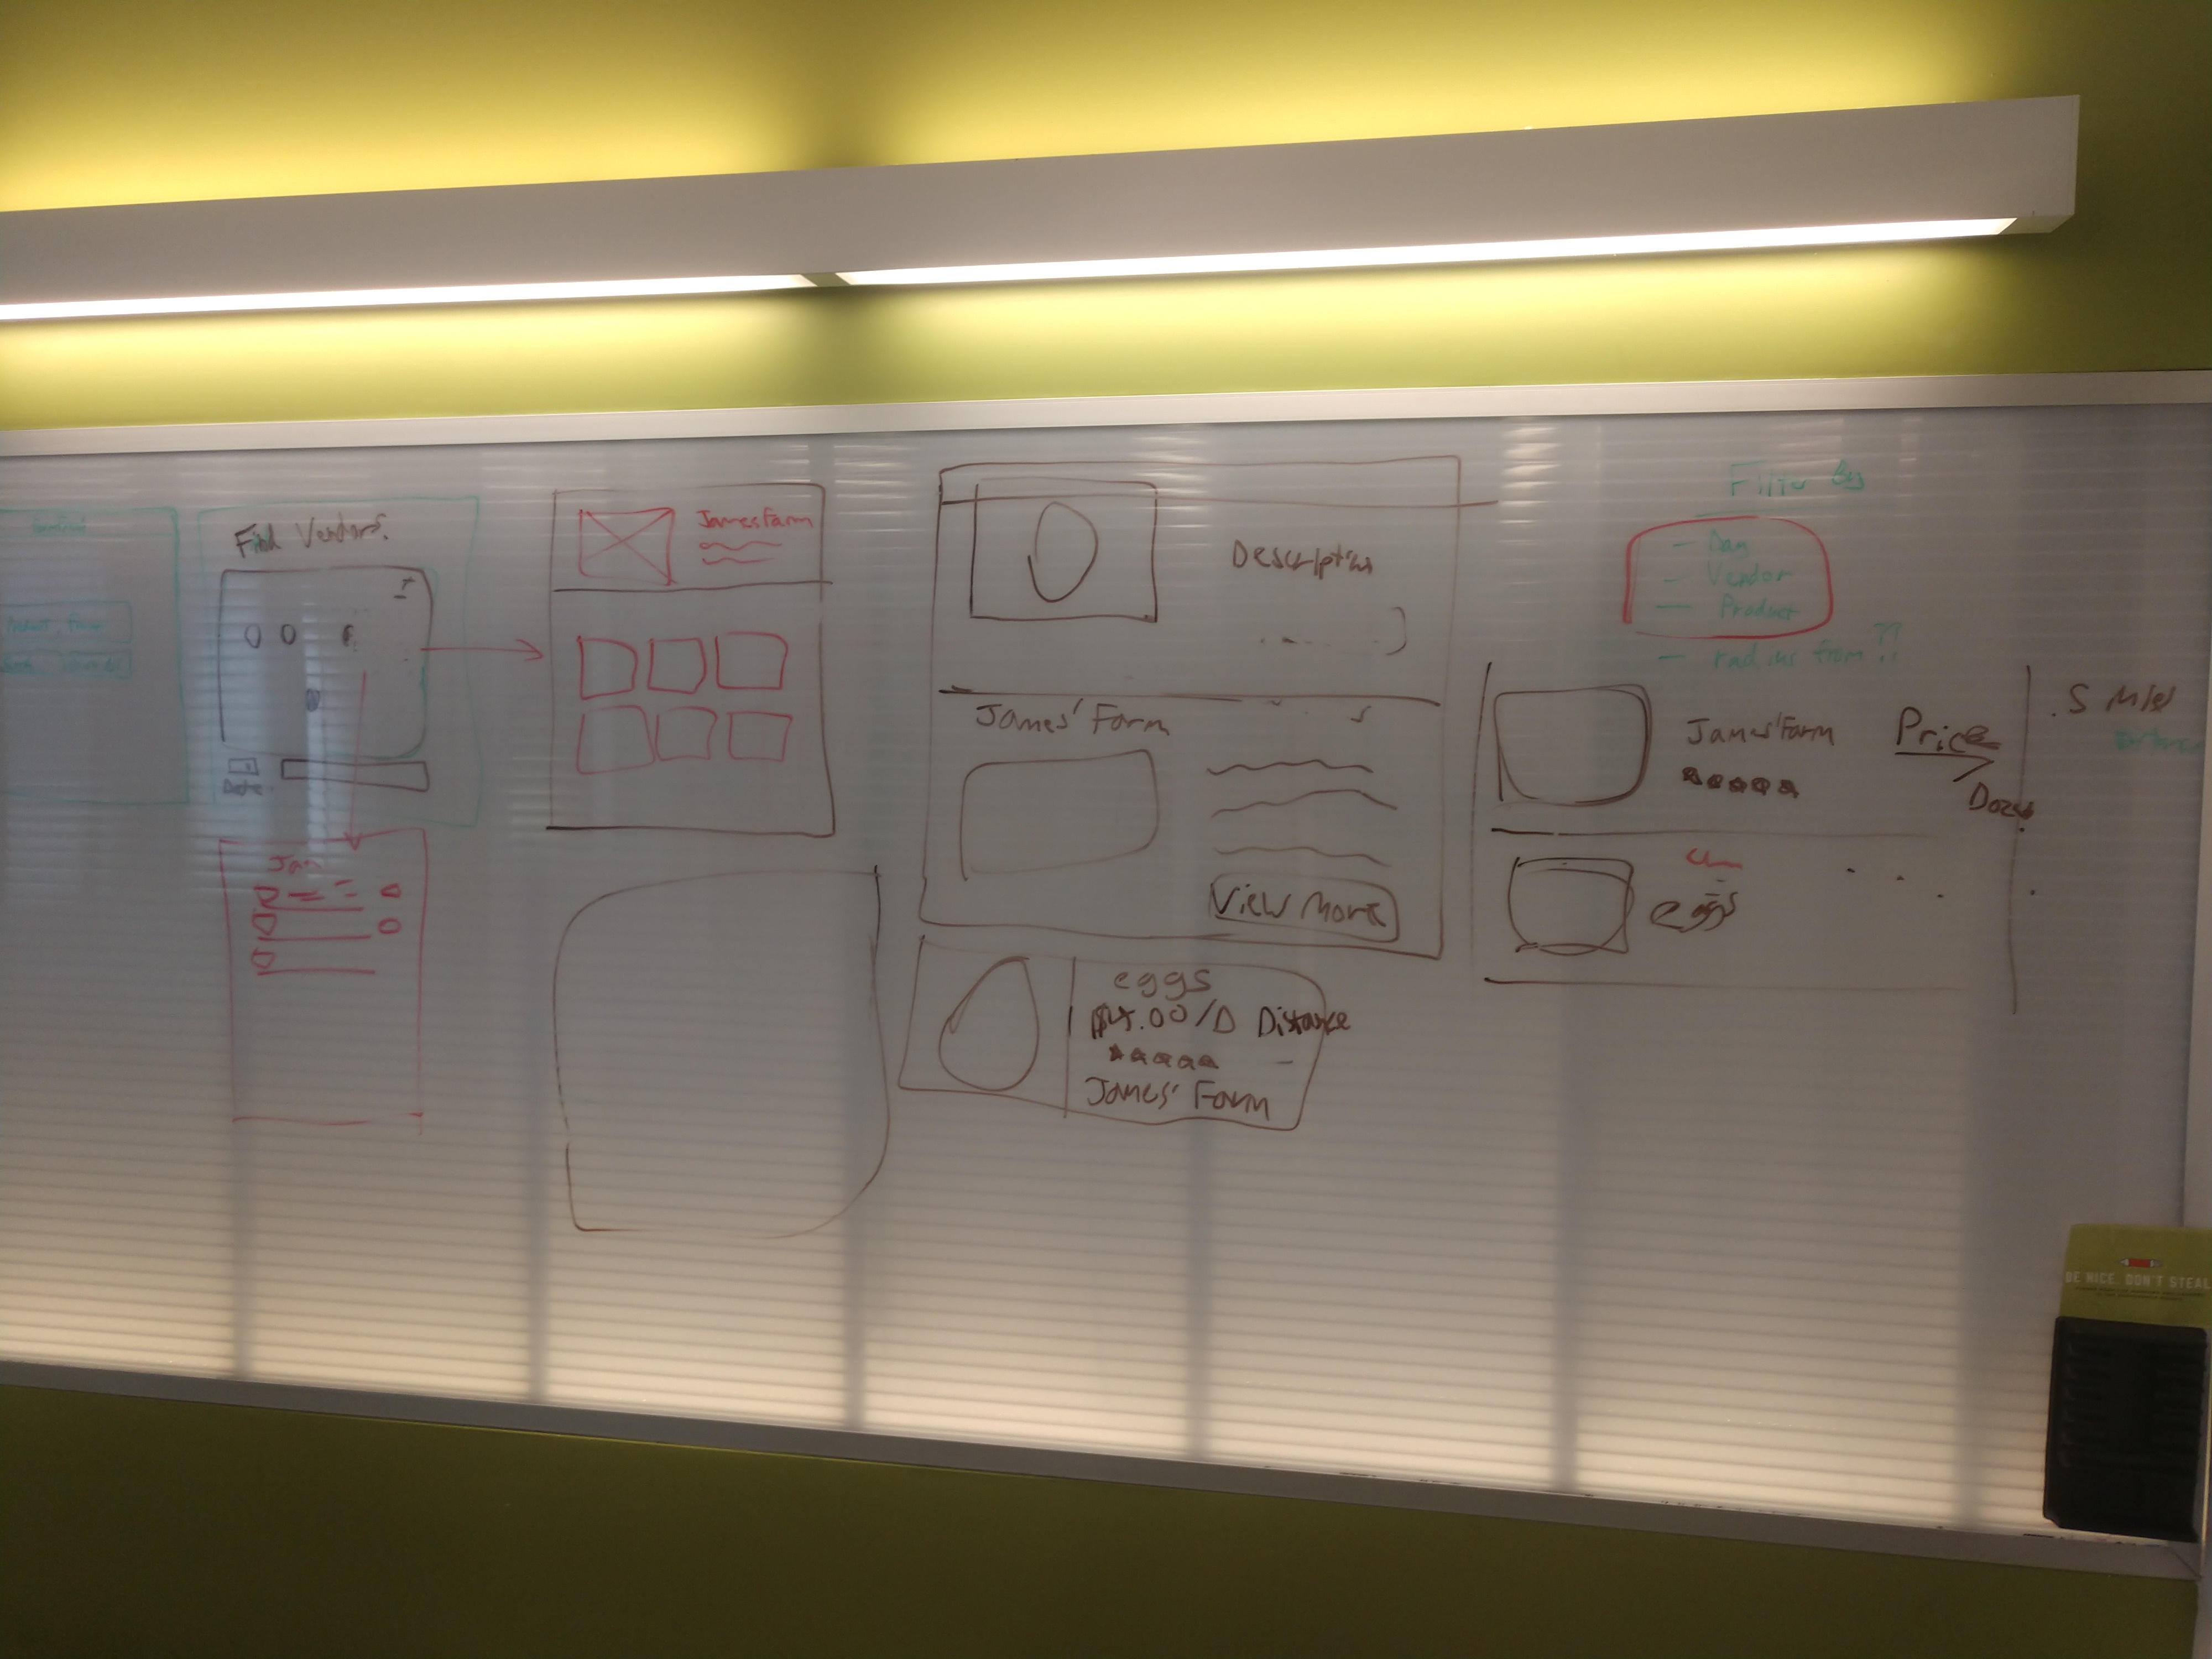 Find Vendors.
Date
James Farm
Description
James' Farm
View More
eggs
$4.00/D Distance
James' Farm
Filter By
- Day
- Vendor
- Product
- radius from ??
James' Farm
Price
eggs
BE NICE. DON'T STEAL